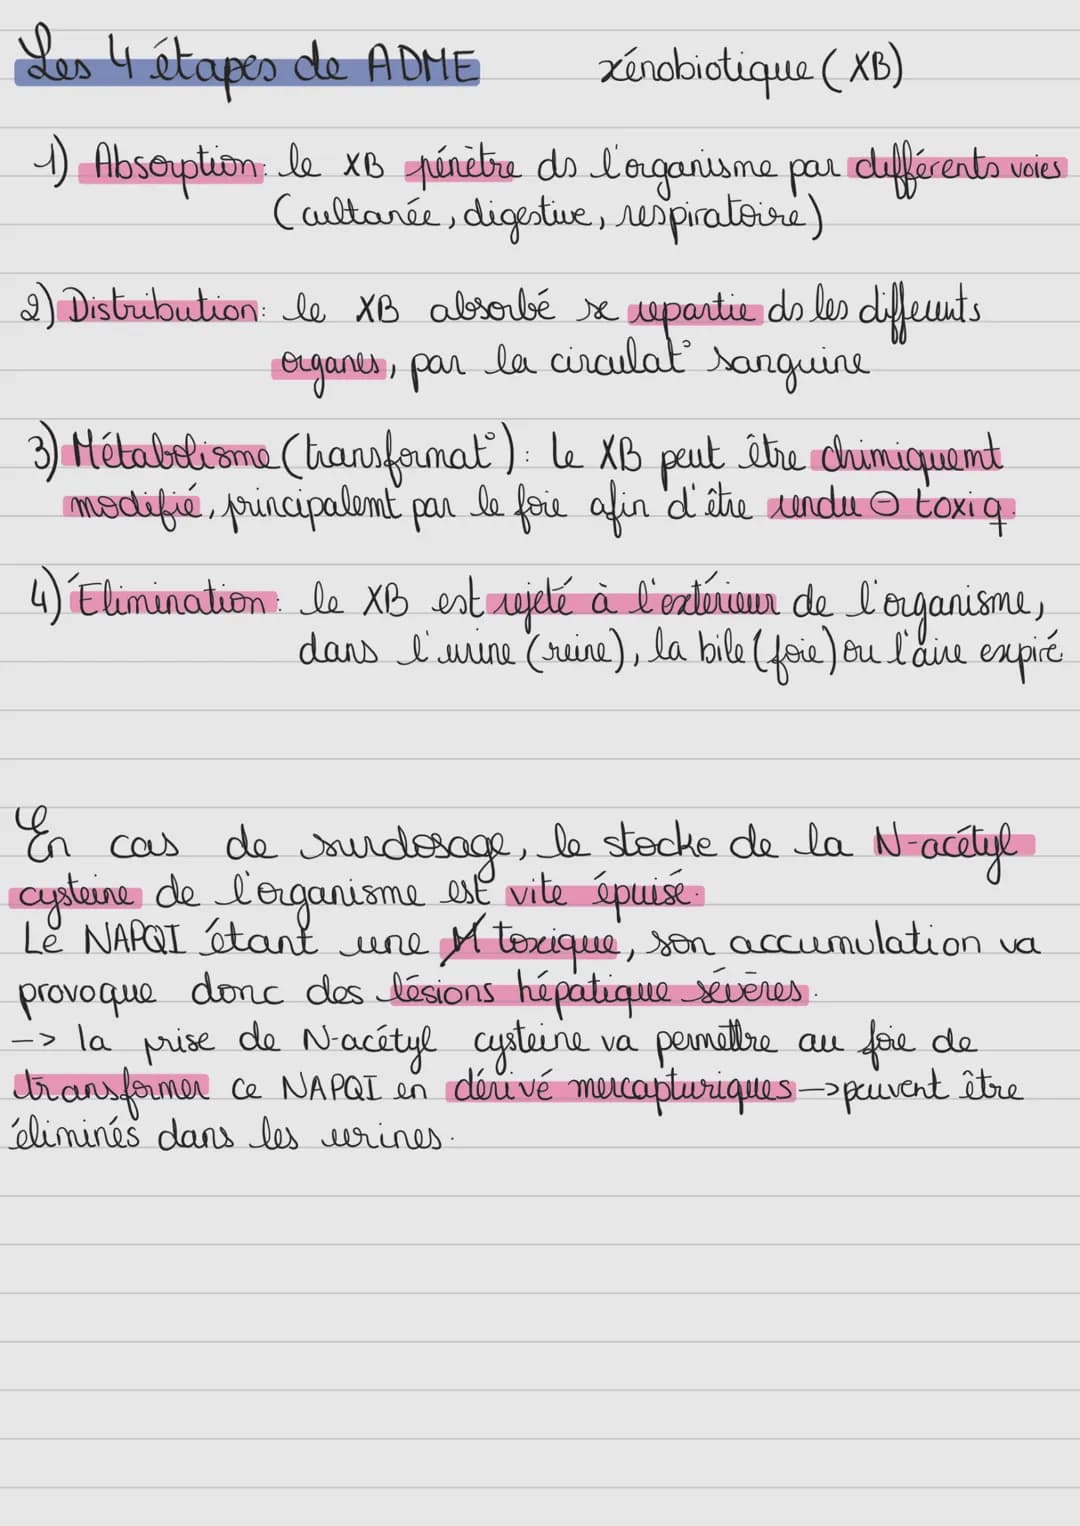 Les 4 étapes de ADME xénobiotique (XB)
1) Absorption: le XB pénètre ds l'organisme par différents voies
(cultanée, digestive, respiratoire)
2) Distribution: le XB absorbé se repartie ds les differents
organes, par la circulat° sanguine
3) Métabolisme (transformat°): le XB peut être chimiquemt
modifié, principalemt par le foie afin d'être rendu ⊖ toxiq.
4) Élimination: le XB est rejeté à l'extérieur de l'organisme,
dans l'urine (reine), la bile (foie) ou l'aire expiré
En cas de surdosage, le stocke de la N-acétyl
cysteine de l'organisme est vite épuisé.
Le NAPQI étant une M toxique, son accumulation va
provoque donc des lésions hépatique sévères.
-> la prise de N-acétyl cysteine va permettre au foie de
transformer ce NAPQI en dérivé mercapturiques -> peuvent être
éliminés dans les urines.